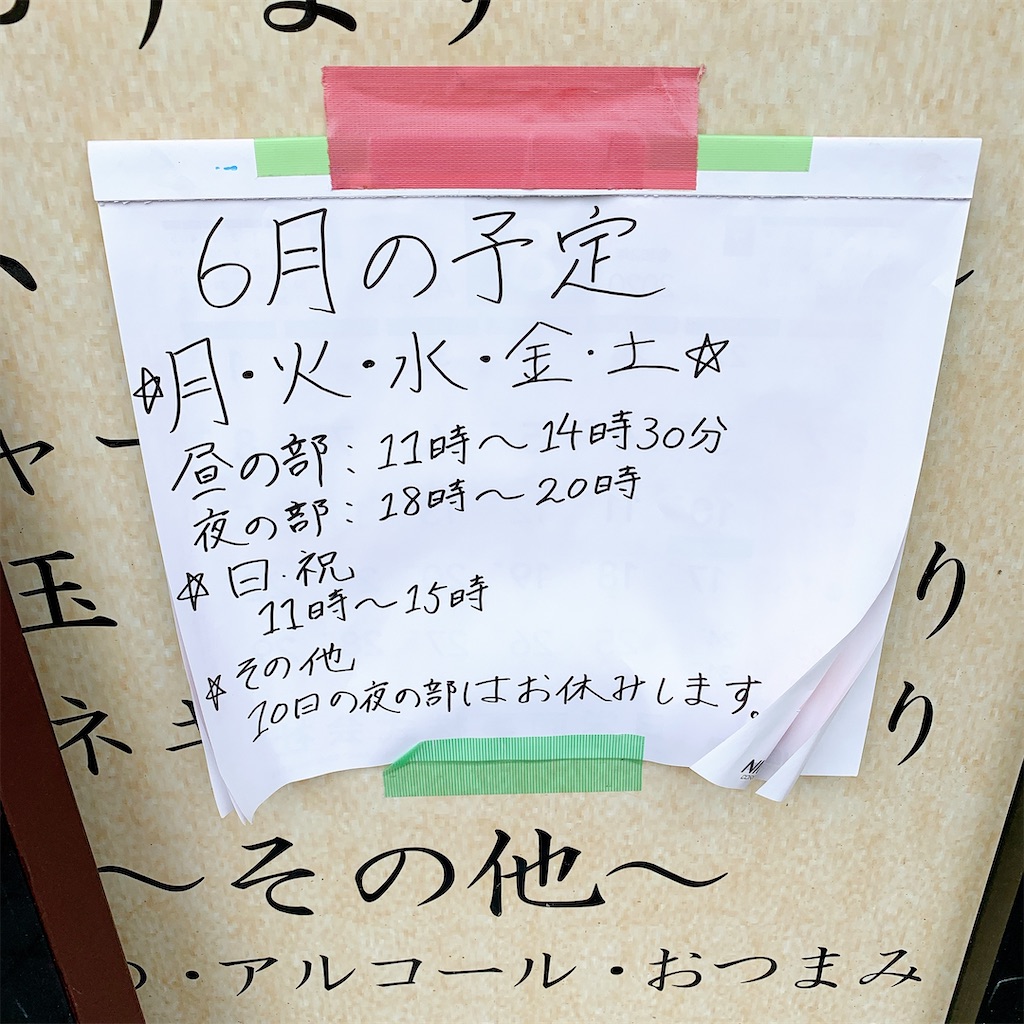 ります
6月の予定
☆月・火・水・金・土☆
昼の部:11時～14時30分
夜の部:18時～20時
☆日・祝
11時～15時
☆その他
10日の夜の部はお休みします。
玉
り
ネ
り
～その他～
・アルコール・おつまみ